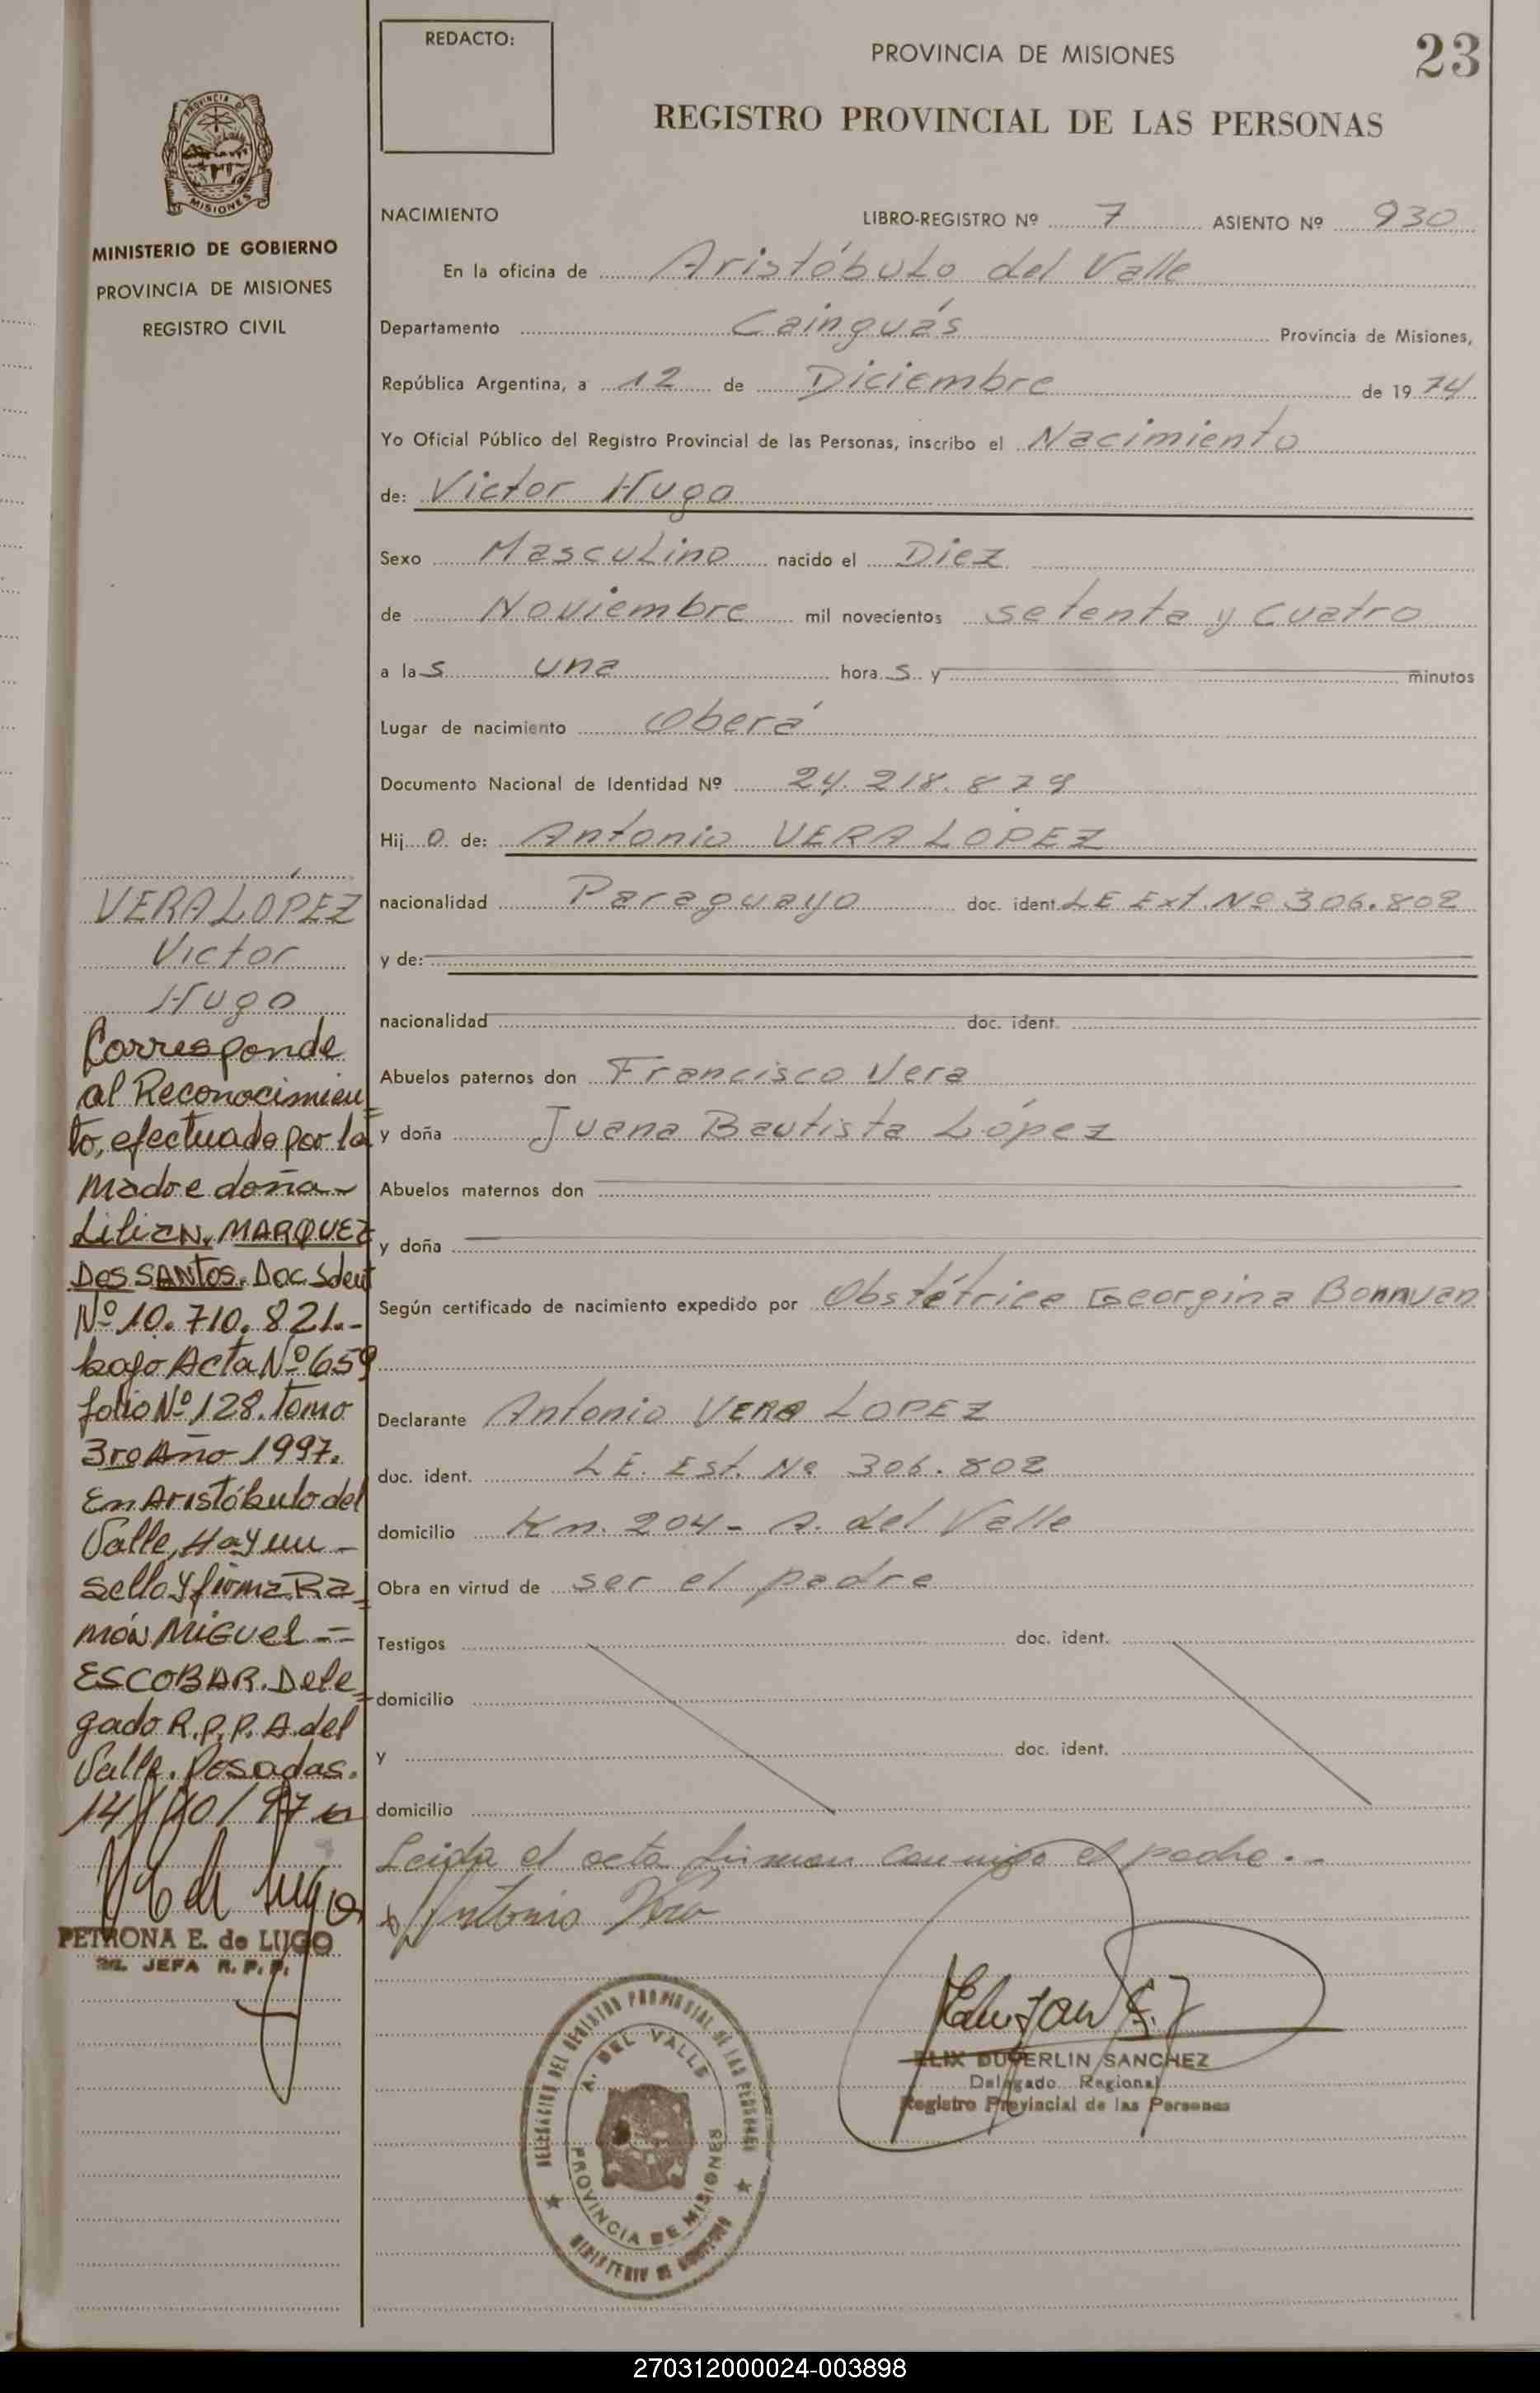 REDACTO:
PROVINCIA DE MISIONES
23
REGISTRO PROVINCIAL DE LAS PERSONAS
PROVINCIA DE
MISIONES
MINISTERIO DE GOBIERNO
PROVINCIA DE MISIONES
REGISTRO CIVIL
NACIMIENTO LIBRO-REGISTRO Nº 7 ASIENTO Nº 930
En la oficina de Aristóbulo del Valle
Departamento Cainguás Provincia de Misiones,
República Argentina, a 12 de Diciembre de 19 74
Yo Oficial Público del Registro Provincial de las Personas, inscribo el Nacimiento
de: Victor Hugo
Sexo Masculino nacido el Diez
de Noviembre mil novecientos setenta y cuatro
a las una horas y minutos
Lugar de nacimiento Oberá
Documento Nacional de Identidad Nº 24.218.879
Hijo de: Antonio VERA LOPEZ
nacionalidad Paraguayo doc. ident. LE Ext. Nº 306.802
y de:
nacionalidad doc. ident.
Abuelos paternos don Francisco Vera
y doña Juana Bautista López
Abuelos maternos don
y doña
Según certificado de nacimiento expedido por Obstétrica Georgina
Declarante Antonio VERA LOPEZ
doc. ident. LE. Est. Nº 306.802
domicilio Km. 204 - A. del Valle
Obra en virtud de ser el padre
Testigos doc. ident.
domicilio
y doc. ident.
domicilio
Leida el acta firman conmigo el padre.-
Antonio Vera
VERA LÓPEZ
Victor
Hugo
Corresponde
al Reconocimien=
to, efectuado por la
Madre doña
Lilian. MARQUEZ
DOS SANTOS. Doc Ident
Nº 10.710.821.-
bajo Acta Nº 659
folio Nº 128. tomo
3ro Año 1997.
En Aristóbulo del
Valle, Hay un
sello y firma Ra=
món MIGUEL =
ESCOBAR. Dele=
gado R.P.P. A. del
Valle. Posadas.
14/10/97
PETRONA E. de LUGO
JEFA R.P.P.
DELEGACION DEL REGISTRO PROVINCIAL DE LAS PERSONAS
A. DEL VALLE
PROVINCIA DE MISIONES
MINISTERIO DE GOBIERNO
ELIX DUVERLIN SANCHEZ
Delegado Regional
Registro Provincial de las Personas
270312000024-003898